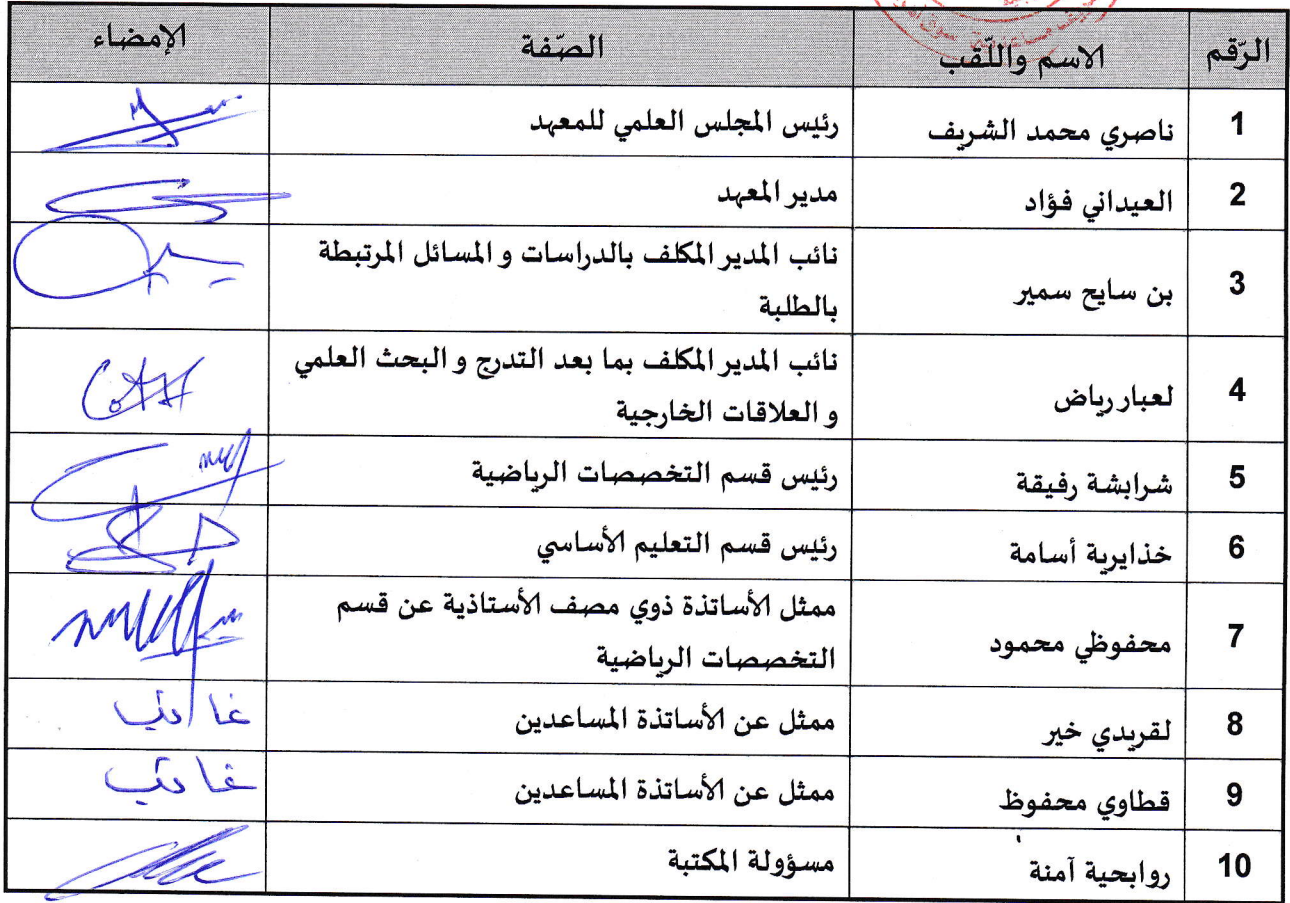 الرّقم الاسم واللّقب الصّفة الإمضاء
1 ناصري محمد الشريف رئيس المجلس العلمي للمعهد
2 العيداني فؤاد مدير المعهد
3 بن سايح سمير نائب المدير المكلف بالدراسات و المسائل المرتبطة
بالطلبة
4 لعبار رياض نائب المدير المكلف بما بعد التدرج و البحث العلمي
و العلاقات الخارجية
5 شرابشة رفيقة رئيس قسم التخصصات الرياضية
6 خذايرية أسامة رئيس قسم التعليم الأساسي
7 محفوظي محمود ممثل الأساتذة ذوي مصف الأستاذية عن قسم
التخصصات الرياضية
8 لقريدي خير ممثل عن الأساتذة المساعدين غائب
9 قطاوي محفوظ ممثل عن الأساتذة المساعدين غائب
10 روابحية آمنة مسؤولة المكتبة